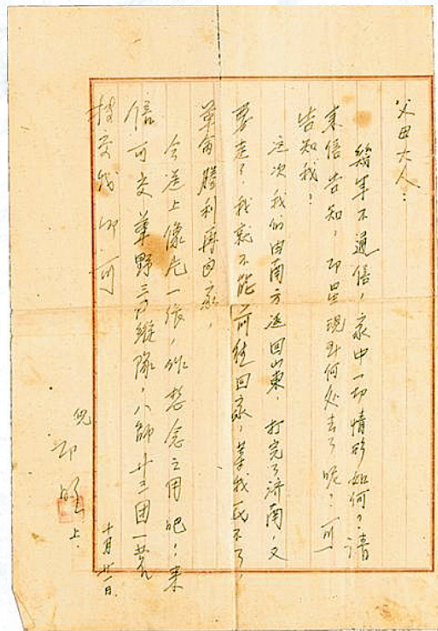 父母大人：
幾年不通信，家中一切情形如何？請
來信告知，印星現到何处去了呢？可
告知我！
这次我们由南方返回山東，打完了济南，又
要走了，我就不能前往回家，等我民不了，
革命勝利再回家，
今送上像片一張，作想念之用吧！来
信可交華野三縱隊，八師廿三团一营
轉交我印可
兒 印 上．
十月廿一日．